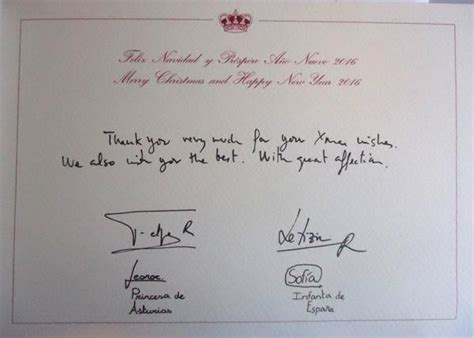 Feliz Navidad y Próspero Año Nuevo 2016
Merry Christmas and Happy New Year 2016
Thank you very much for your Xmas wishes.
We also wish you the best. With great affection.
Felipe R
Letizia R
Leonor
Princesa de
Asturias
Sofía
Infanta de
España